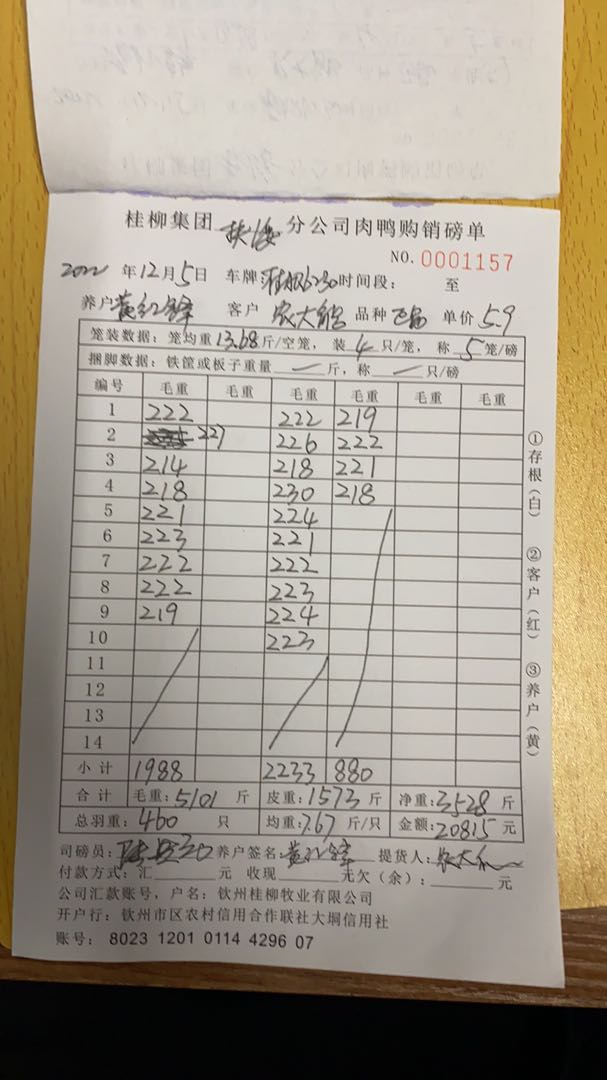 桂柳集团 分公司肉鸭购销磅单
NO. 0001157
2022 年 12 月 5 日 车牌 6230 时间段： 至
养户 黄红锋 客户 农大能 品种 单价 5.9
笼装数据：笼均重 13.68 斤/空笼， 装 4 只/笼， 称 5 笼/磅
捆脚数据：铁筐或板子重量 — 斤，称 — 只/磅
编号 毛重 毛重 毛重 毛重 毛重 毛重
1 222 222 219
2 227 226 222
3 214 218 221
4 218 230 218
5 221 224
6 223 221
7 222 222
8 222 223
9 219 224
10 223
11
12
13
14
小计 1988 2233 880
合计 毛重：5101 斤 皮重：1573 斤 净重：3528 斤
总羽重：460 只 均重：7.67 斤/只 金额：20815 元
司磅员： 养户签名：黄红锋 提货人：农大能
付款方式：汇 元 收现 元无欠（余）： 元
公司汇款账号，户名：钦州桂柳牧业有限公司
开户行：钦州市区农村信用合作联社大垌信用社
账号： 8023 1201 0114 4296 07
①存根（白） ②客户（红） ③养户（黄）